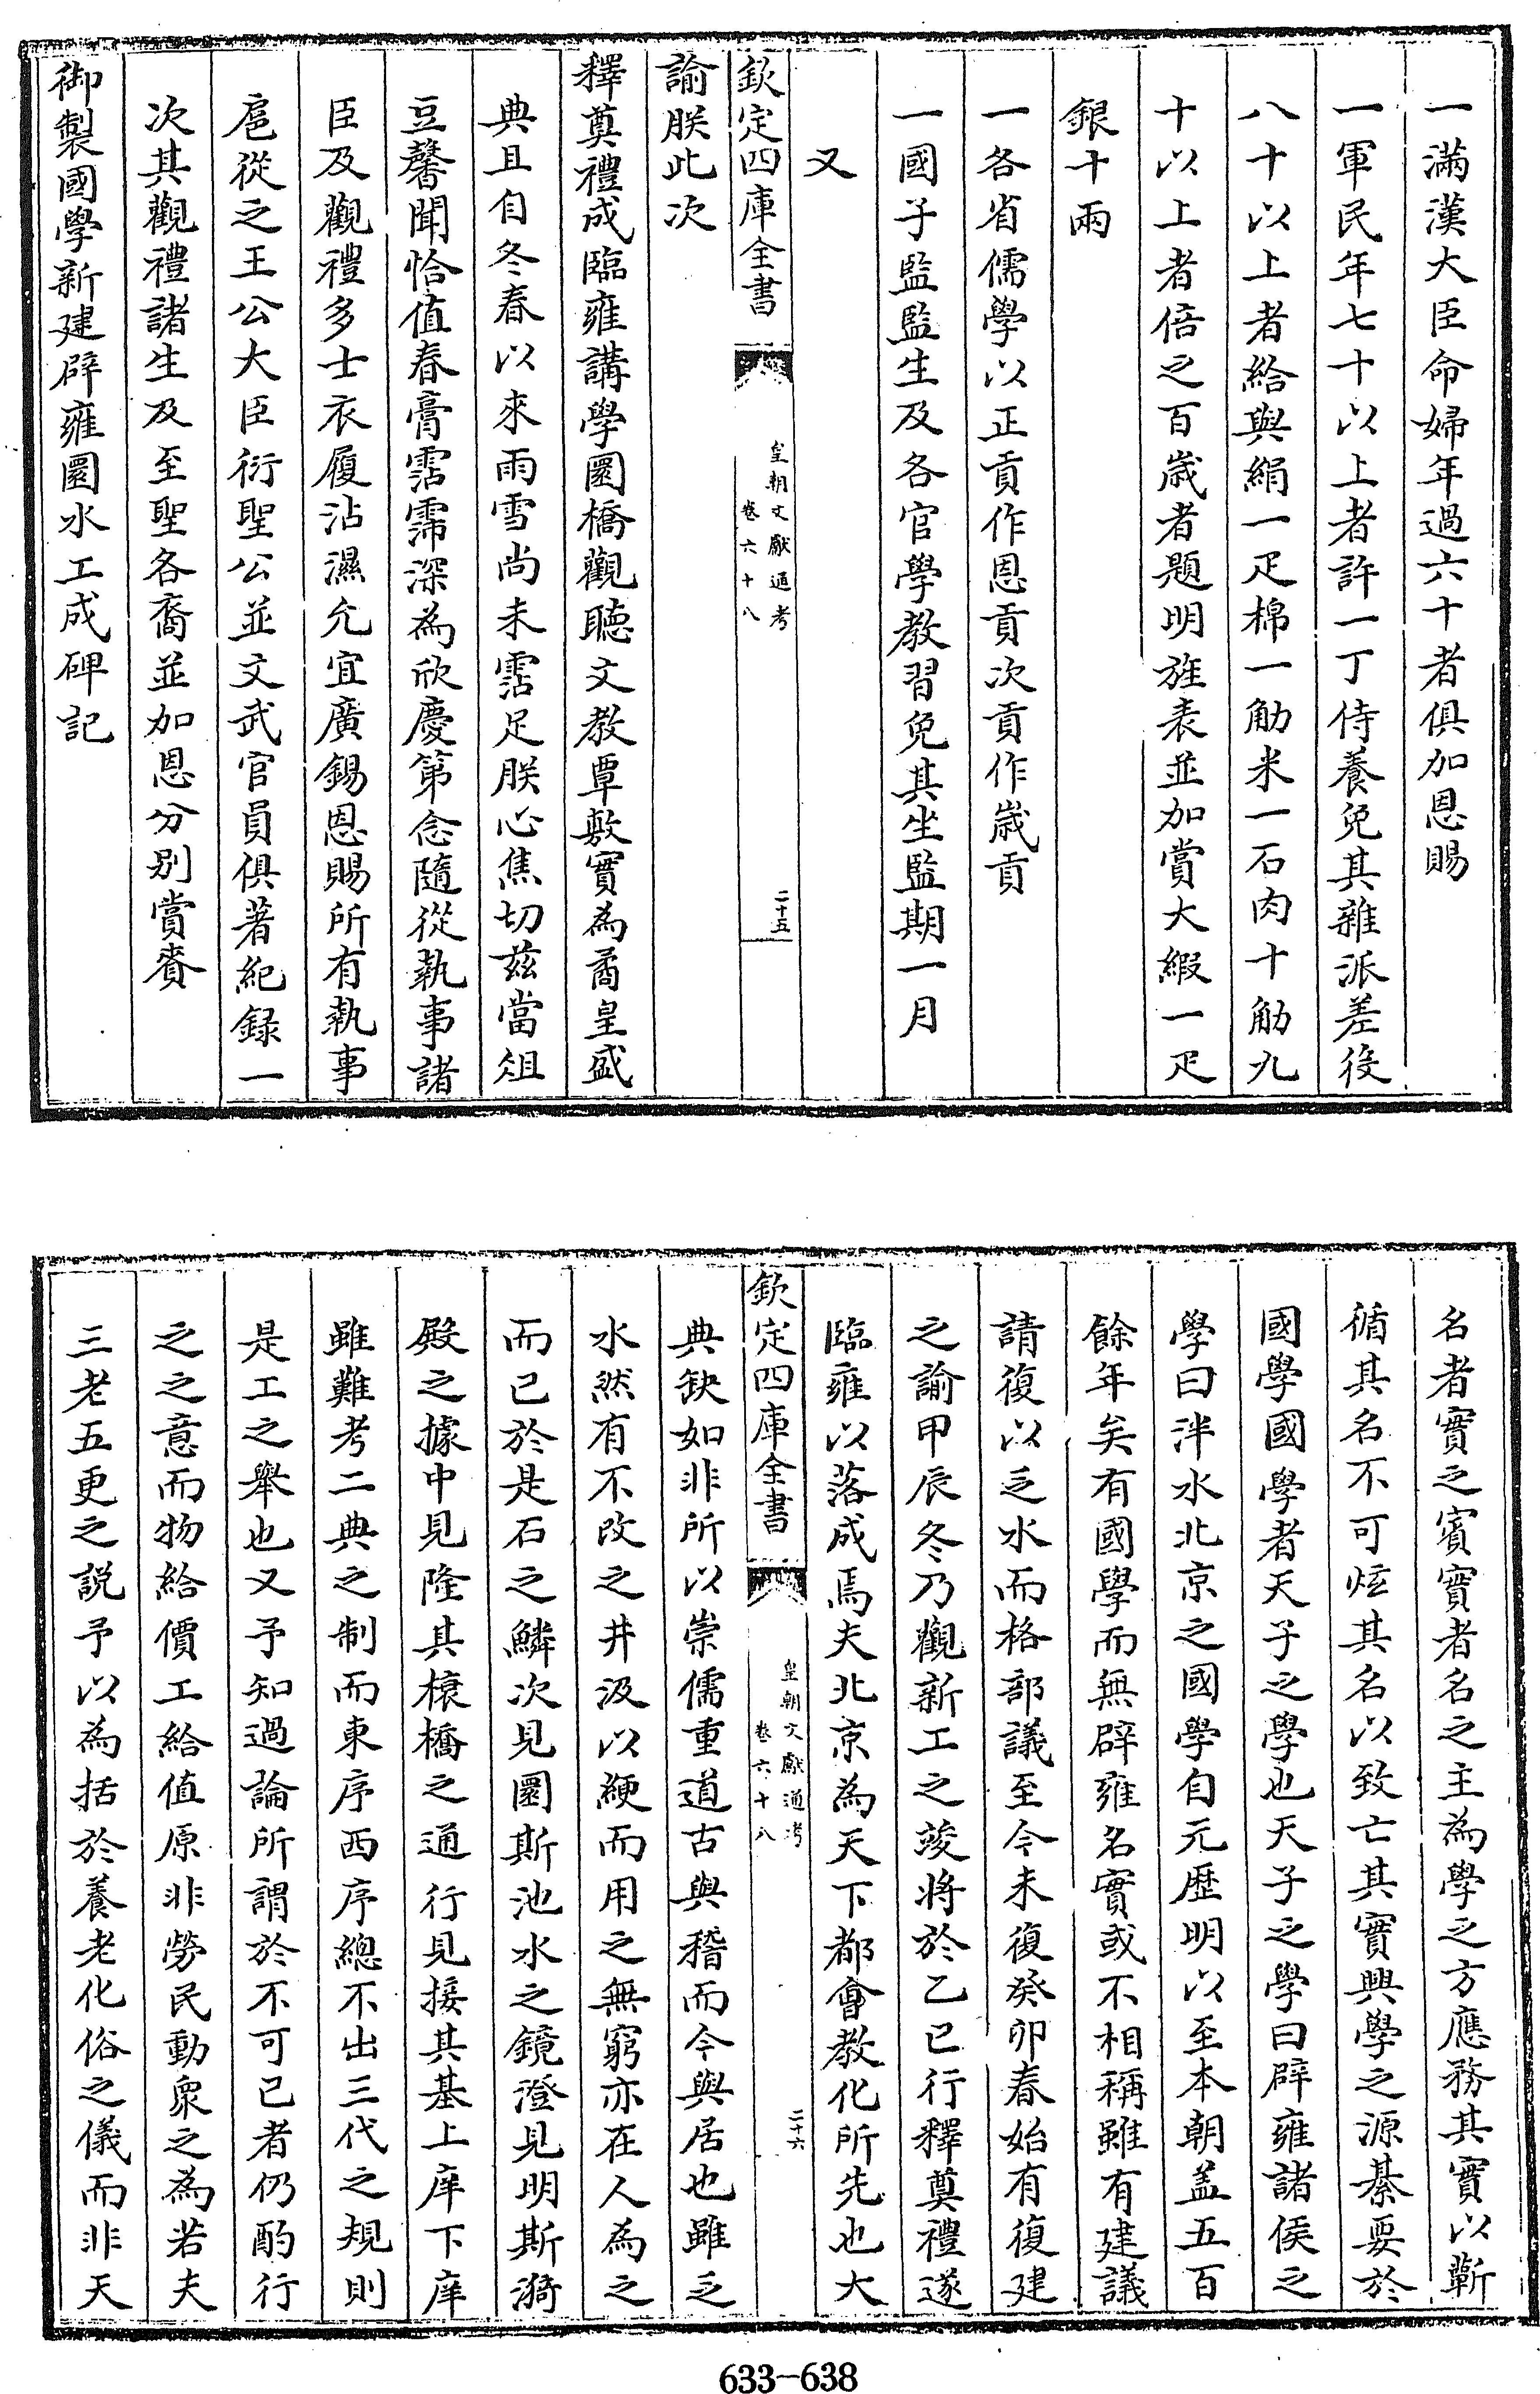 一滿漢大臣命婦年過六十者俱加恩賜
一軍民年七十以上者許一丁侍養免其雜派差役
八十以上者給與絹一疋棉一觔米一石肉十觔九
十以上者倍之百歲者題明旌表並加賞大緞一疋
銀十兩
一各省儒學以正貢作恩貢次貢作歲貢
一國子監監生及各官學教習免其坐監期一月
又
欽定四庫全書
皇朝文獻通考
卷六十八
二十五
諭朕此次
釋奠禮成臨雍講學圜橋觀聽文教覃敷實為矞皇盛
典且自冬春以來雨雪尚未霑足朕心焦切茲當俎
豆馨聞恰值春膏霑霈深為欣慶第念隨從執事諸
臣及觀禮多士衣履沾濕允宜廣錫恩賜所有執事
扈從之王公大臣衍聖公並文武官員俱著紀錄一
次其觀禮諸生及至聖各裔並加恩分別賞賚
御製國學新建辟雍圜水工成碑記
名者實之賓實者名之主為學之方應務其實以蘄
循其名不可炫其名以致亡其實興學之源綦要於
國學國學者天子之學也天子之學曰辟雍諸侯之
學曰泮水北京之國學自元歷明以至本朝蓋五百
餘年矣有國學而無辟雍名實或不相稱雖有建議
請復以乏水而格部議至今未復癸卯春始有復建
之諭甲辰冬乃觀新工之竣將於乙巳行釋奠禮遂
臨雍以落成焉夫北京為天下都會教化所先也大
欽定四庫全書
皇朝文獻通考
卷六十八
二十六
典缺如非所以崇儒重道古與稽而今與居也雖乏
水然有不改之井汲以綆而用之無窮亦在人為之
而已於是石之鱗次見圜斯池水之鏡澄見明斯漪
殿之據中見隆其榱橋之通行見接其基上庠下庠
雖難考二典之制而東序西序總不出三代之規則
是工之舉也又予知過論所謂於不可已者仍酌行
之之意而物給價工給值原非勞民動衆之為若夫
三老五更之說予以為括於養老化俗之儀而非天
633-638